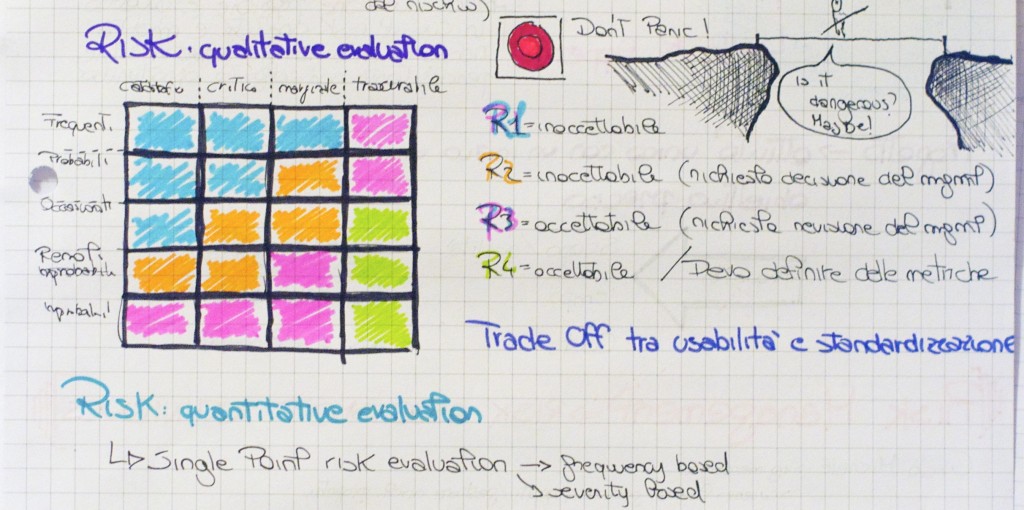 del rischio)
Don't Panic!
Risk: qualitative evaluation
catastrofico critico marginale trascurabile
Is it
dangerous?
Maybe!
Frequenti
Probabili
Occasionali
Remoti
Improbabili
R1 = inaccettabile
R2 = inaccettabile (richiesta decisione del mgmt)
R3 = accettabile (richiesta revisione del mgmt)
R4 = accettabile / Devo definire delle metriche
Trade Off tra usabilità e standardizzazione
Risk: quantitative evaluation
↳ Single Point risk evaluation → frequency based
↘ severity based